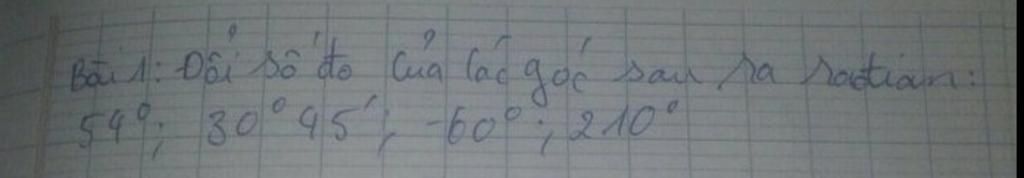 Bài 1: Đổi số đo của các góc sau ra radian:
54°; 30°45'; -60°; 210°